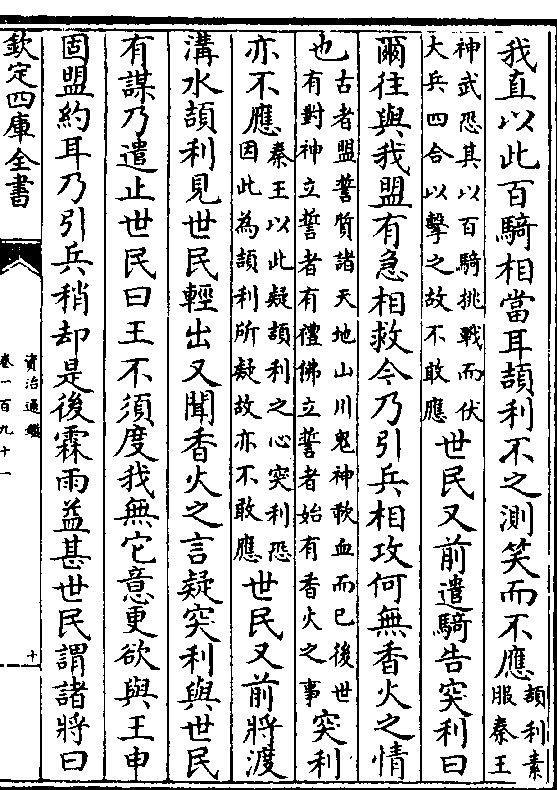 我直以此百騎相當耳頡利不之測笑而不應頡利素服秦王
神武恐其以百騎挑戰而伏大兵四合以擊之故不敢應世民又前遣騎告突利曰
爾往與我盟有急相救今乃引兵相攻何無香火之情
也古者盟誓質諸天地山川鬼神歃血而已後世有對神立誓者有禮佛立誓者始有香火之事突利
亦不應秦王以此疑頡利之心突利恐因此為頡利所疑故亦不敢應世民又前將渡
溝水頡利見世民輕出又聞香火之言疑突利與世民
有謀乃遣止世民曰王不須度我無它意更欲與王申
固盟約耳乃引兵稍却是後霖雨益甚世民謂諸將曰
欽定四庫全書
資治通鑑
卷一百九十一
十